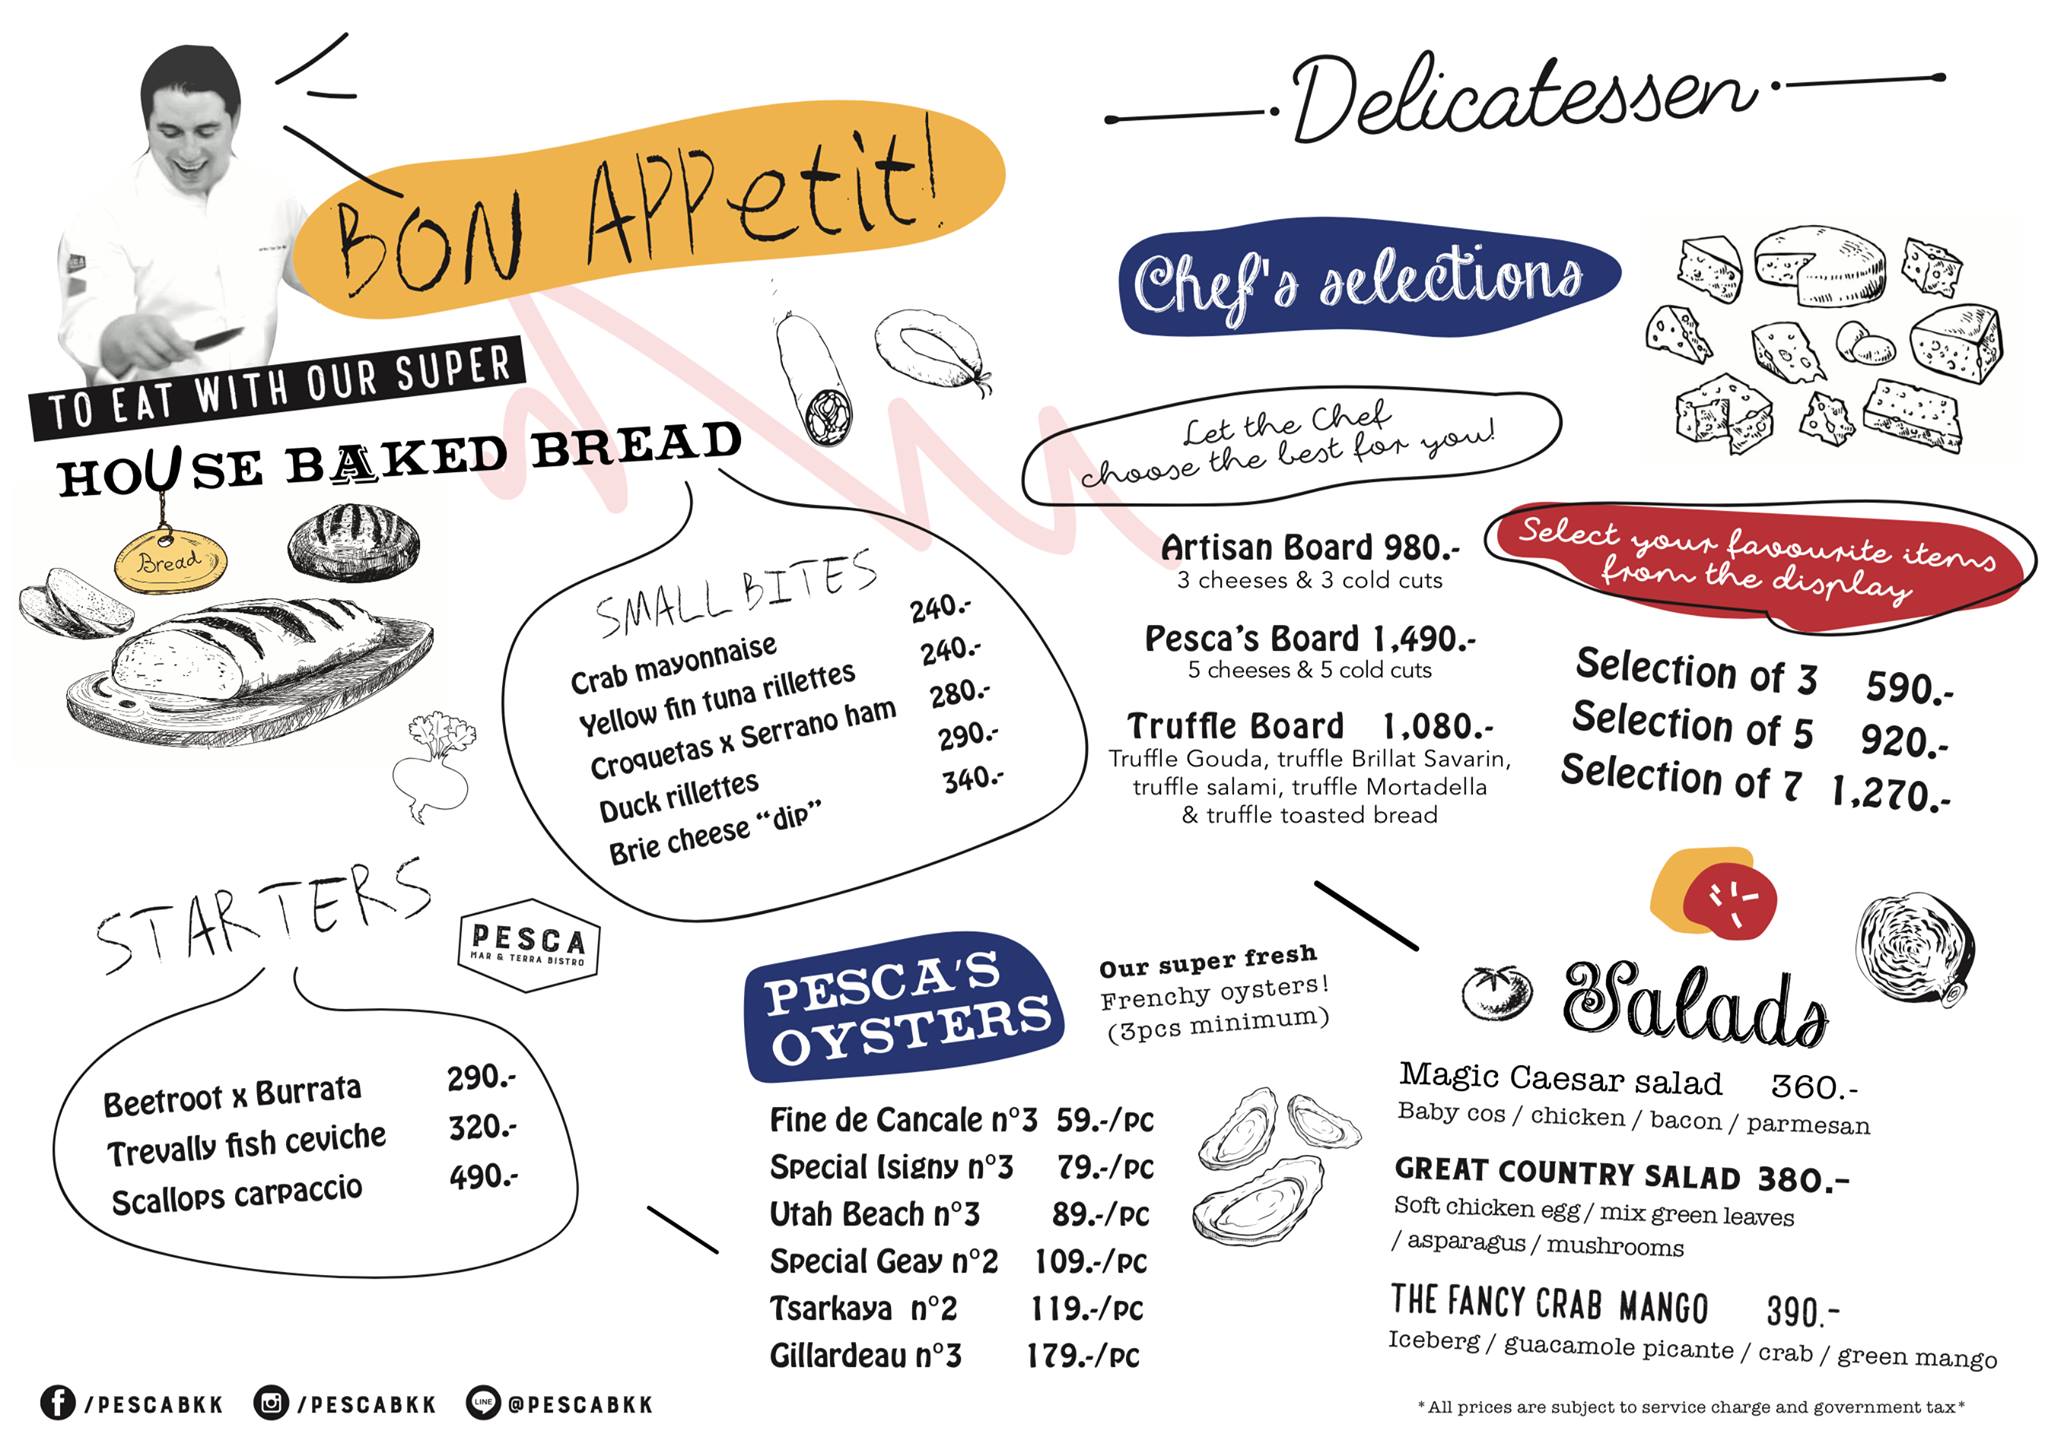 BON APPetit!
TO EAT WITH OUR SUPER
HOUSE BAKED BREAD
Bread
SMALL BITES
Crab mayonnaise 240.-
Yellow fin tuna rillettes 240.-
Croquetas x Serrano ham 280.-
Duck rillettes 290.-
Brie cheese “dip” 340.-
STARTERS
PESCA
MAR & TERRA BISTRO
Beetroot x Burrata 290.-
Trevally fish ceviche 320.-
Scallops carpaccio 490.-
PESCA'S
OYSTERS
Our super fresh
Frenchy oysters!
(3pcs minimum)
Fine de Cancale n°3 59.-/PC
Special Isigny n°3 79.-/PC
Utah Beach n°3 89.-/PC
Special Geay n°2 109.-/PC
Tsarkaya n°2 119.-/PC
Gillardeau n°3 179.-/PC
Delicatessen
Chef's selections
Let the Chef
choose the best for you!
Artisan Board 980.-
3 cheeses & 3 cold cuts
Pesca’s Board 1,490.-
5 cheeses & 5 cold cuts
Truffle Board 1,080.-
Truffle Gouda, truffle Brillat Savarin,
truffle salami, truffle Mortadella
& truffle toasted bread
Select your favourite items
from the display
Selection of 3 590.-
Selection of 5 920.-
Selection of 7 1,270.-
Salads
Magic Caesar salad 360.-
Baby cos / chicken / bacon / parmesan
GREAT COUNTRY SALAD 380.-
Soft chicken egg / mix green leaves
/ asparagus / mushrooms
THE FANCY CRAB MANGO 390.-
Iceberg / guacamole picante / crab / green mango
/PESCABKK /PESCABKK LINE @PESCABKK
*All prices are subject to service charge and government tax*